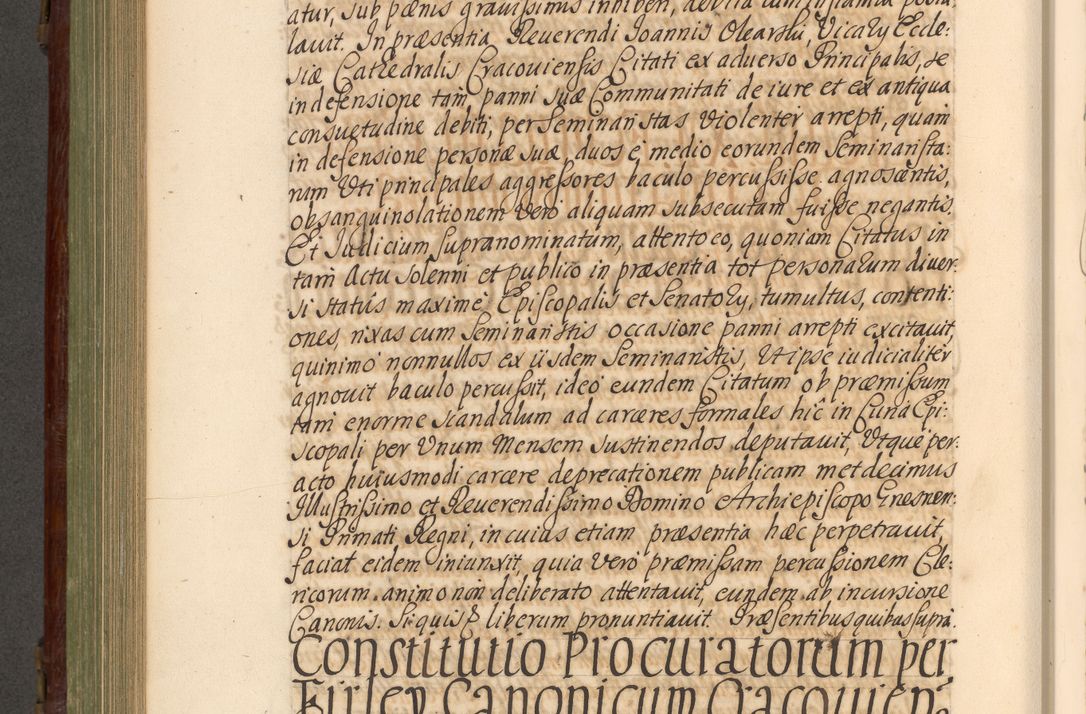 atur, sub pænis gravissimus inhiberi, debita cum instantia postu:
lavit. In præsentia Reverendi Ioannis Olearski, Vicary Eccle:
siæ Cathedralis Cracoviensis Citati ex adverso Principalis, se
in defensione tam panni suæ Communitati de iure et ex antiqua
consuetudine debiti, per Seminaristas violenter arrepti, quam
in defensione personæ suæ, duos è medio eorundem Seminarista:
rum Uti principales aggressores baculo percussisse agnoscentis,
ob sanguinolationem vero aliquam subsecutam fuisse negantis.
Et Iudicium supranominatum, attento eo, quoniam Citatus in
tam Actu solenni et publico in præsentia tot personarum diver:
si status maximè Episcopalis et Senatory, tumultus, contenti:
ones, rixas cum Seminaristis occasione panni arrepti excitavit,
quinimò nonnullos ex iisdem Seminaristis, Ut ipse iudicialiter
agnovit baculo percussit, ideo eundem Citatum ob præmissum
tam enorme scandalum ad carceres formales hic in Curia Epi:
scopali per Unum Mensem sustinendos deputavit, Utque per:
acto huiusmodi carcere deprecationem publicam met decimus
Illustrissimo et Reverendissimo Domino Archiepiscopo Gnesnen:
si Primati Regni, in cuius etiam præsentia hæc perpetravit,
faciat eidem iniunxit, quia vero præmissam percussionem Cle:
ricorum animo non deliberato attentavit, eundem ab incursione
Canonis. Si quis liberum pronuntiavit. Præsentibus quibus supra.
Constitutio Procuratorum per
Firley Canonicum Cracovien: